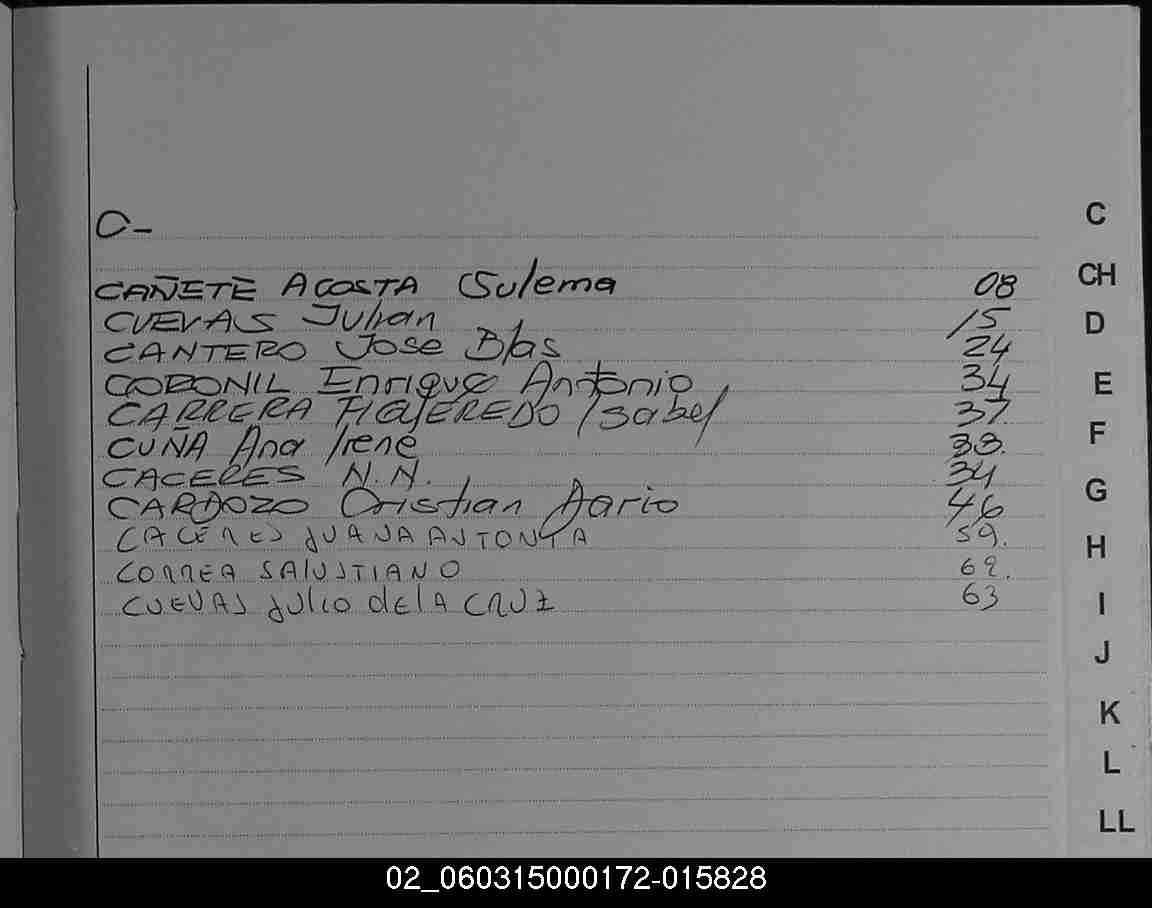 C-
CAÑETE ACOSTA Sulema 08
CUEVAS Julian 15
CANTERO Jose Blas 24
CORONIL Enrique Antonio 34
CARRERA FIGUEREDO Isabel 37.
CUÑA Ana Irene 38.
CACERES N.N. 34
CARDOZO Cristian Dario 46
CACERES JUANA ANTONIA 59.
CORREA SALUSTIANO 62.
CUEVAS Julio de la CRUZ 63
C
CH
D
E
F
G
H
I
J
K
L
LL
02_060315000172-015828